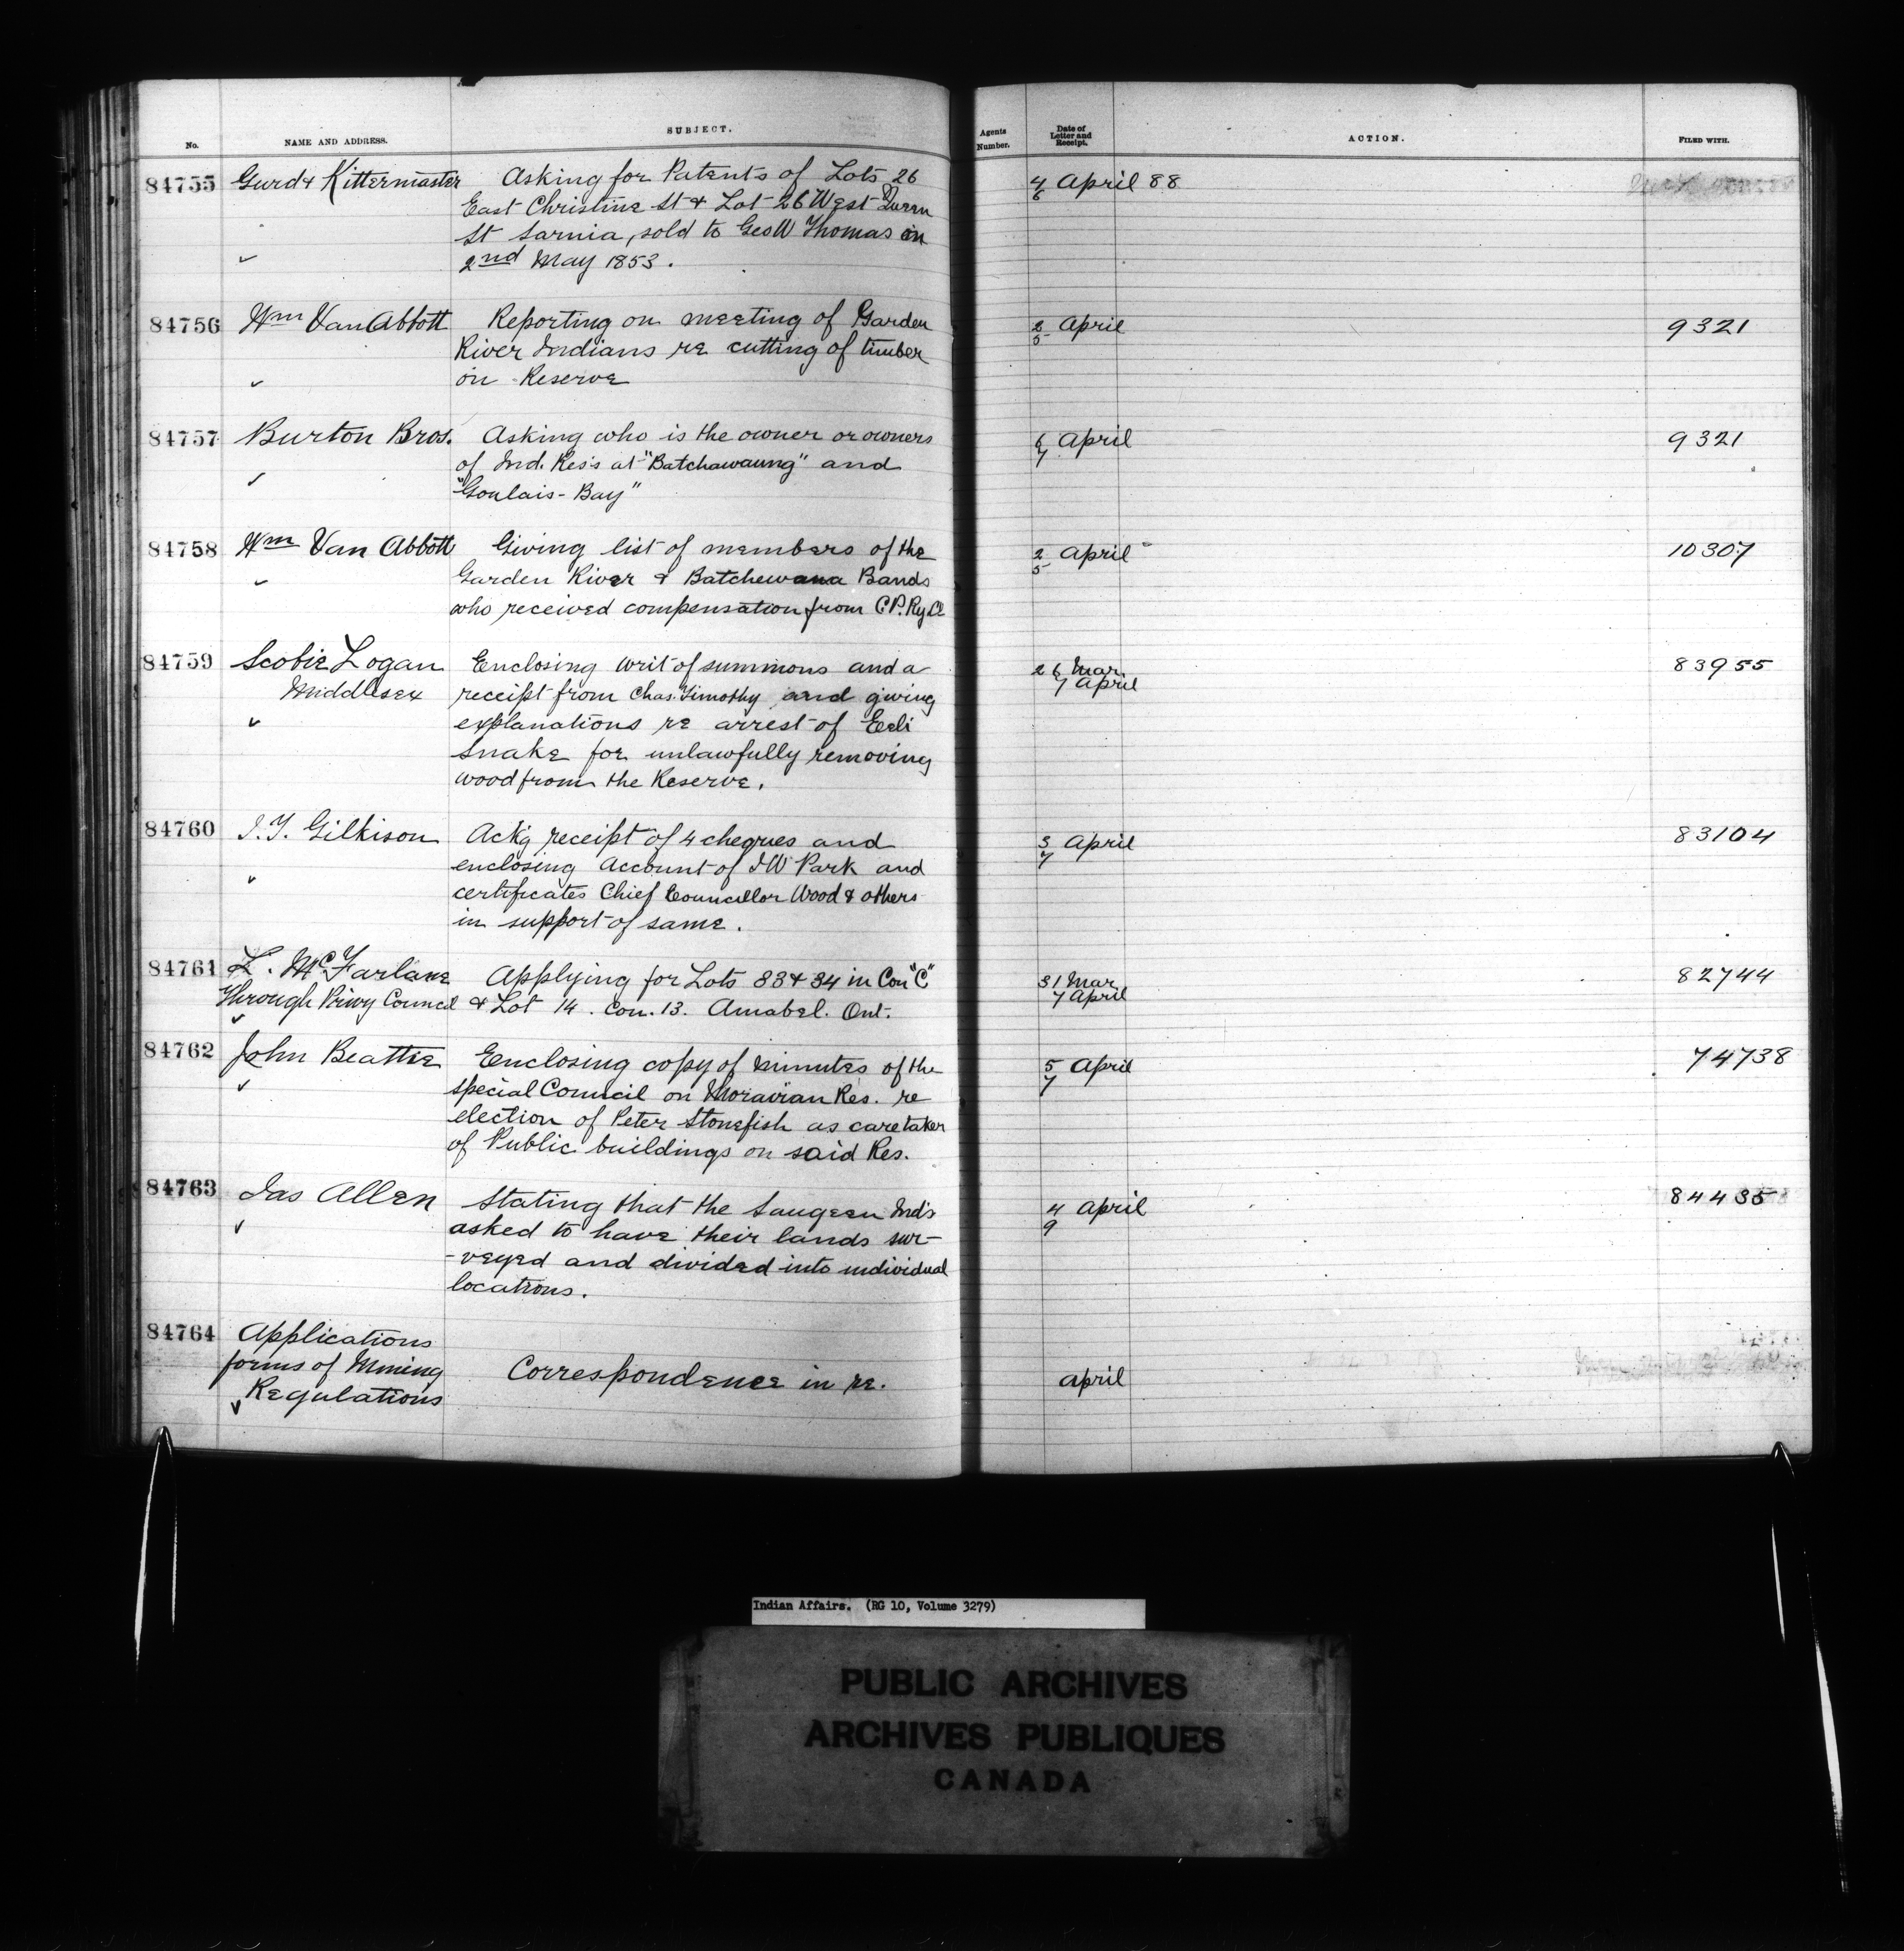 No. NAME AND ADDRESS. SUBJECT. Agents Number. Date of Letter and Receipt. ACTION. FILED WITH.
84755 Gurd & Kittermaster Asking for Patents of Lots 26 4/6 April 88
East Christina St & Lot 26 West Queen
St Sarnia, sold to Geo W Thomas on
✓ 2nd May 1853.
84756 Wm Van Abbott Reporting on meeting of Garden 2/5 April 9321
River Indians re cutting of timber
✓ on Reserve
84757 Burton Bros. Asking who is the owner or owners 6/7 April 9321
✓ of Ind. Res's at "Batchawaung" and
"Goulais-Bay"
84758 Wm Van Abbott Giving list of members of the 2/5 April 10307
✓ Garden River & Batchewana Bands
who received compensation from C.P. Ry Co
84759 Scobie Logan Enclosing writ of summons and a 26 Mar 83955
Middlesex receipt from Chas. Timothy and giving 7 April
✓ explanations re arrest of Eeli
Snake for unlawfully removing
wood from the Reserve.
84760 J.T. Gilkison Ack'g receipt of 4 cheques and 3/7 April 83104
✓ enclosing account of J W Park and
certificates Chief Councillor Wood & others
in support of same.
84761 L. McFarlane Applying for Lots 33 & 34 in Con "C" 31 Mar 82744
Through Privy Council & Lot 14. Con. 13. Amabel. Ont. 7 April
✓
84762 John Beattie Enclosing copy of minutes of the 5/7 April 74738
✓ special Council on Moravian Res. re
election of Peter Stonefish as caretaker
of Public buildings on said Res.
84763 Jas Allen Stating that the Saugeen Ind's 4/9 April 84435
✓ asked to have their lands sur-
-veyed and divided into individual
locations.
84764 Applications
forms of Mining Correspondence in re. April
✓ Regulations
Indian Affairs. (RG 10, Volume 3279)
PUBLIC ARCHIVES
ARCHIVES PUBLIQUES
CANADA